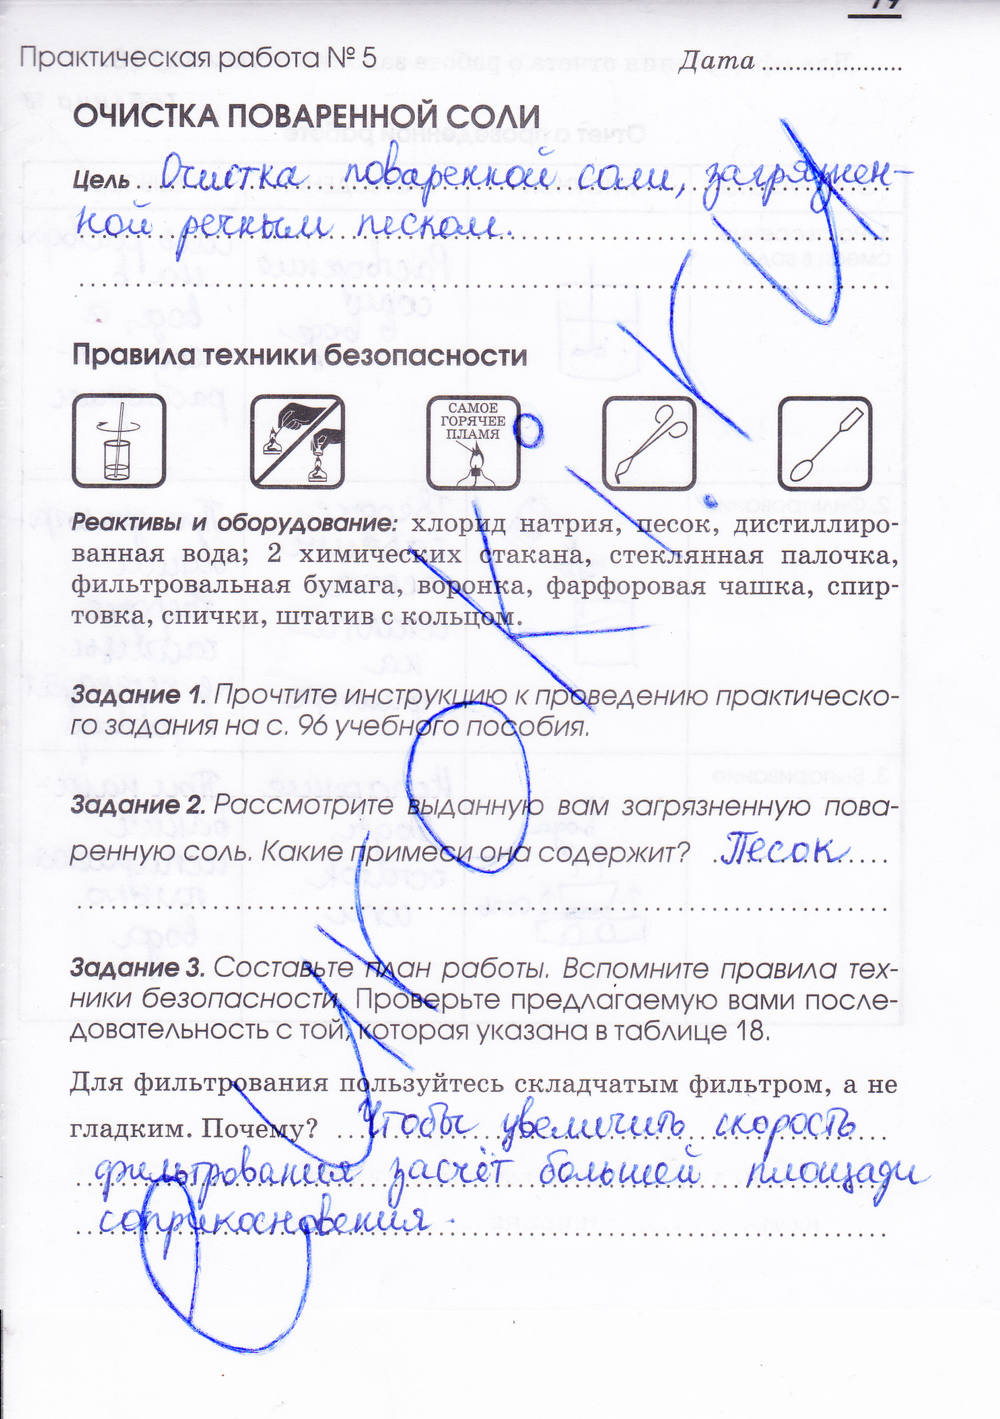 Практическая работа № 5 Дата
ОЧИСТКА ПОВАРЕННОЙ СОЛИ
Цель Очистка поваренной соли, загрязнен-
ной речным песком.
Правила техники безопасности
САМОЕ
ГОРЯЧЕЕ
ПЛАМЯ
Реактивы и оборудование: хлорид натрия, песок, дистиллиро-
ванная вода; 2 химических стакана, стеклянная палочка,
фильтровальная бумага, воронка, фарфоровая чашка, спир-
товка, спички, штатив с кольцом.
Задание 1. Прочтите инструкцию к проведению практическо-
го задания на с. 96 учебного пособия.
Задание 2. Рассмотрите выданную вам загрязненную пова-
ренную соль. Какие примеси она содержит? Песок
Задание 3. Составьте план работы. Вспомните правила тех-
ники безопасности. Проверьте предлагаемую вами после-
довательность с той, которая указана в таблице 18.
Для фильтрования пользуйтесь складчатым фильтром, а не
гладким. Почему? Чтобы увеличить скорость
фильтрования засчёт большей площади
соприкосновения.